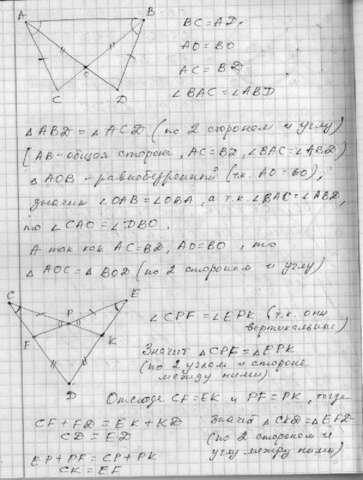 A B
C D
BC = AD.
AO = BO
AC = BD
∠BAC = ∠ABD
△ABD = △ACD (по 2 сторонам и углу)
[AB - общая сторона, AC = BD, ∠BAC = ∠ABD)
△AOB - равнобедренный (т.к. AO = BO),
значит ∠OAB = ∠OBA, а т.к. ∠BAC = ∠ABD,
то ∠CAO = ∠DBO.
А так как AC = BD, AO = BO, то
△AOC = △BOD (по 2 сторонам и углу)
C E
P
F K
D
∠CPF = ∠EPK (т.к. они
вертикальные)
Значит △CPF = △EPK
(по 2 углам и стороне
между ними)
Отсюда CF = EK и PF = PK, тогда
CF + FD = EK + KD
CD = ED
EP + PF = CP + PK
CK = EF
Значит △CKD = △EFD
(по 2 сторонам и
углу между ними)